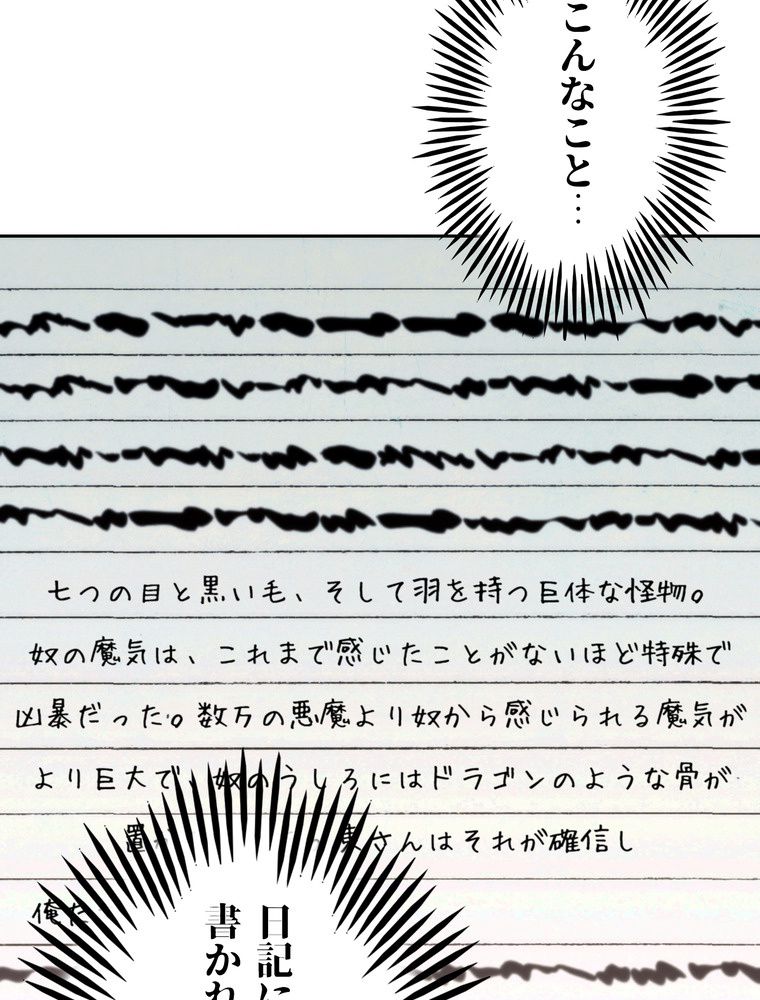 こんなこと…
七つの目と黒い毛、そして羽を持つ巨体な怪物。
奴の魔気は、これまで感じたことがないほど特殊で
凶暴だった。数万の悪魔より奴から感じられる魔気が
より巨大で、奴のうしろにはドラゴンのような骨が
置か さんはそれが確信し
俺た
日記に
書かれ